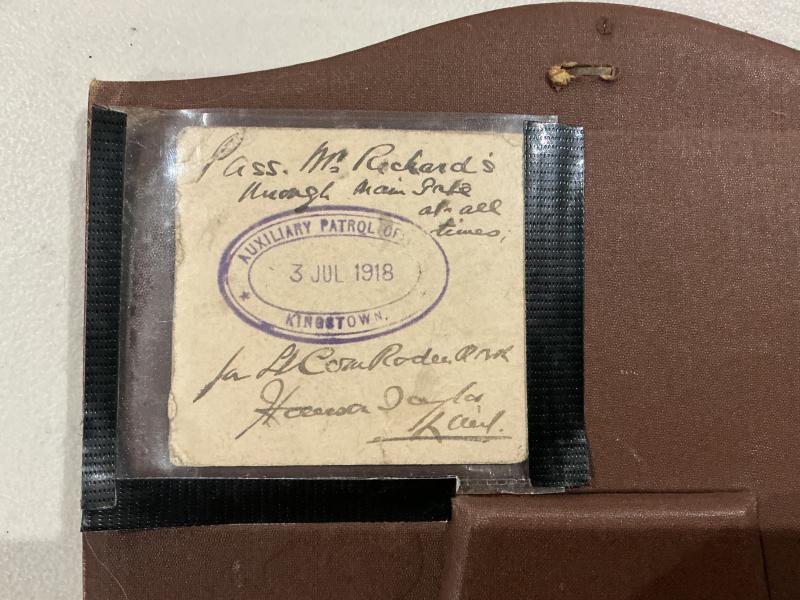 Pass. Mr Richards
through Main Gate
at all
times.
AUXILIARY PATROL OF
3 JUL 1918
★ KINGSTOWN.
for Lt Com Roden RNR
Taylor
Lieut.